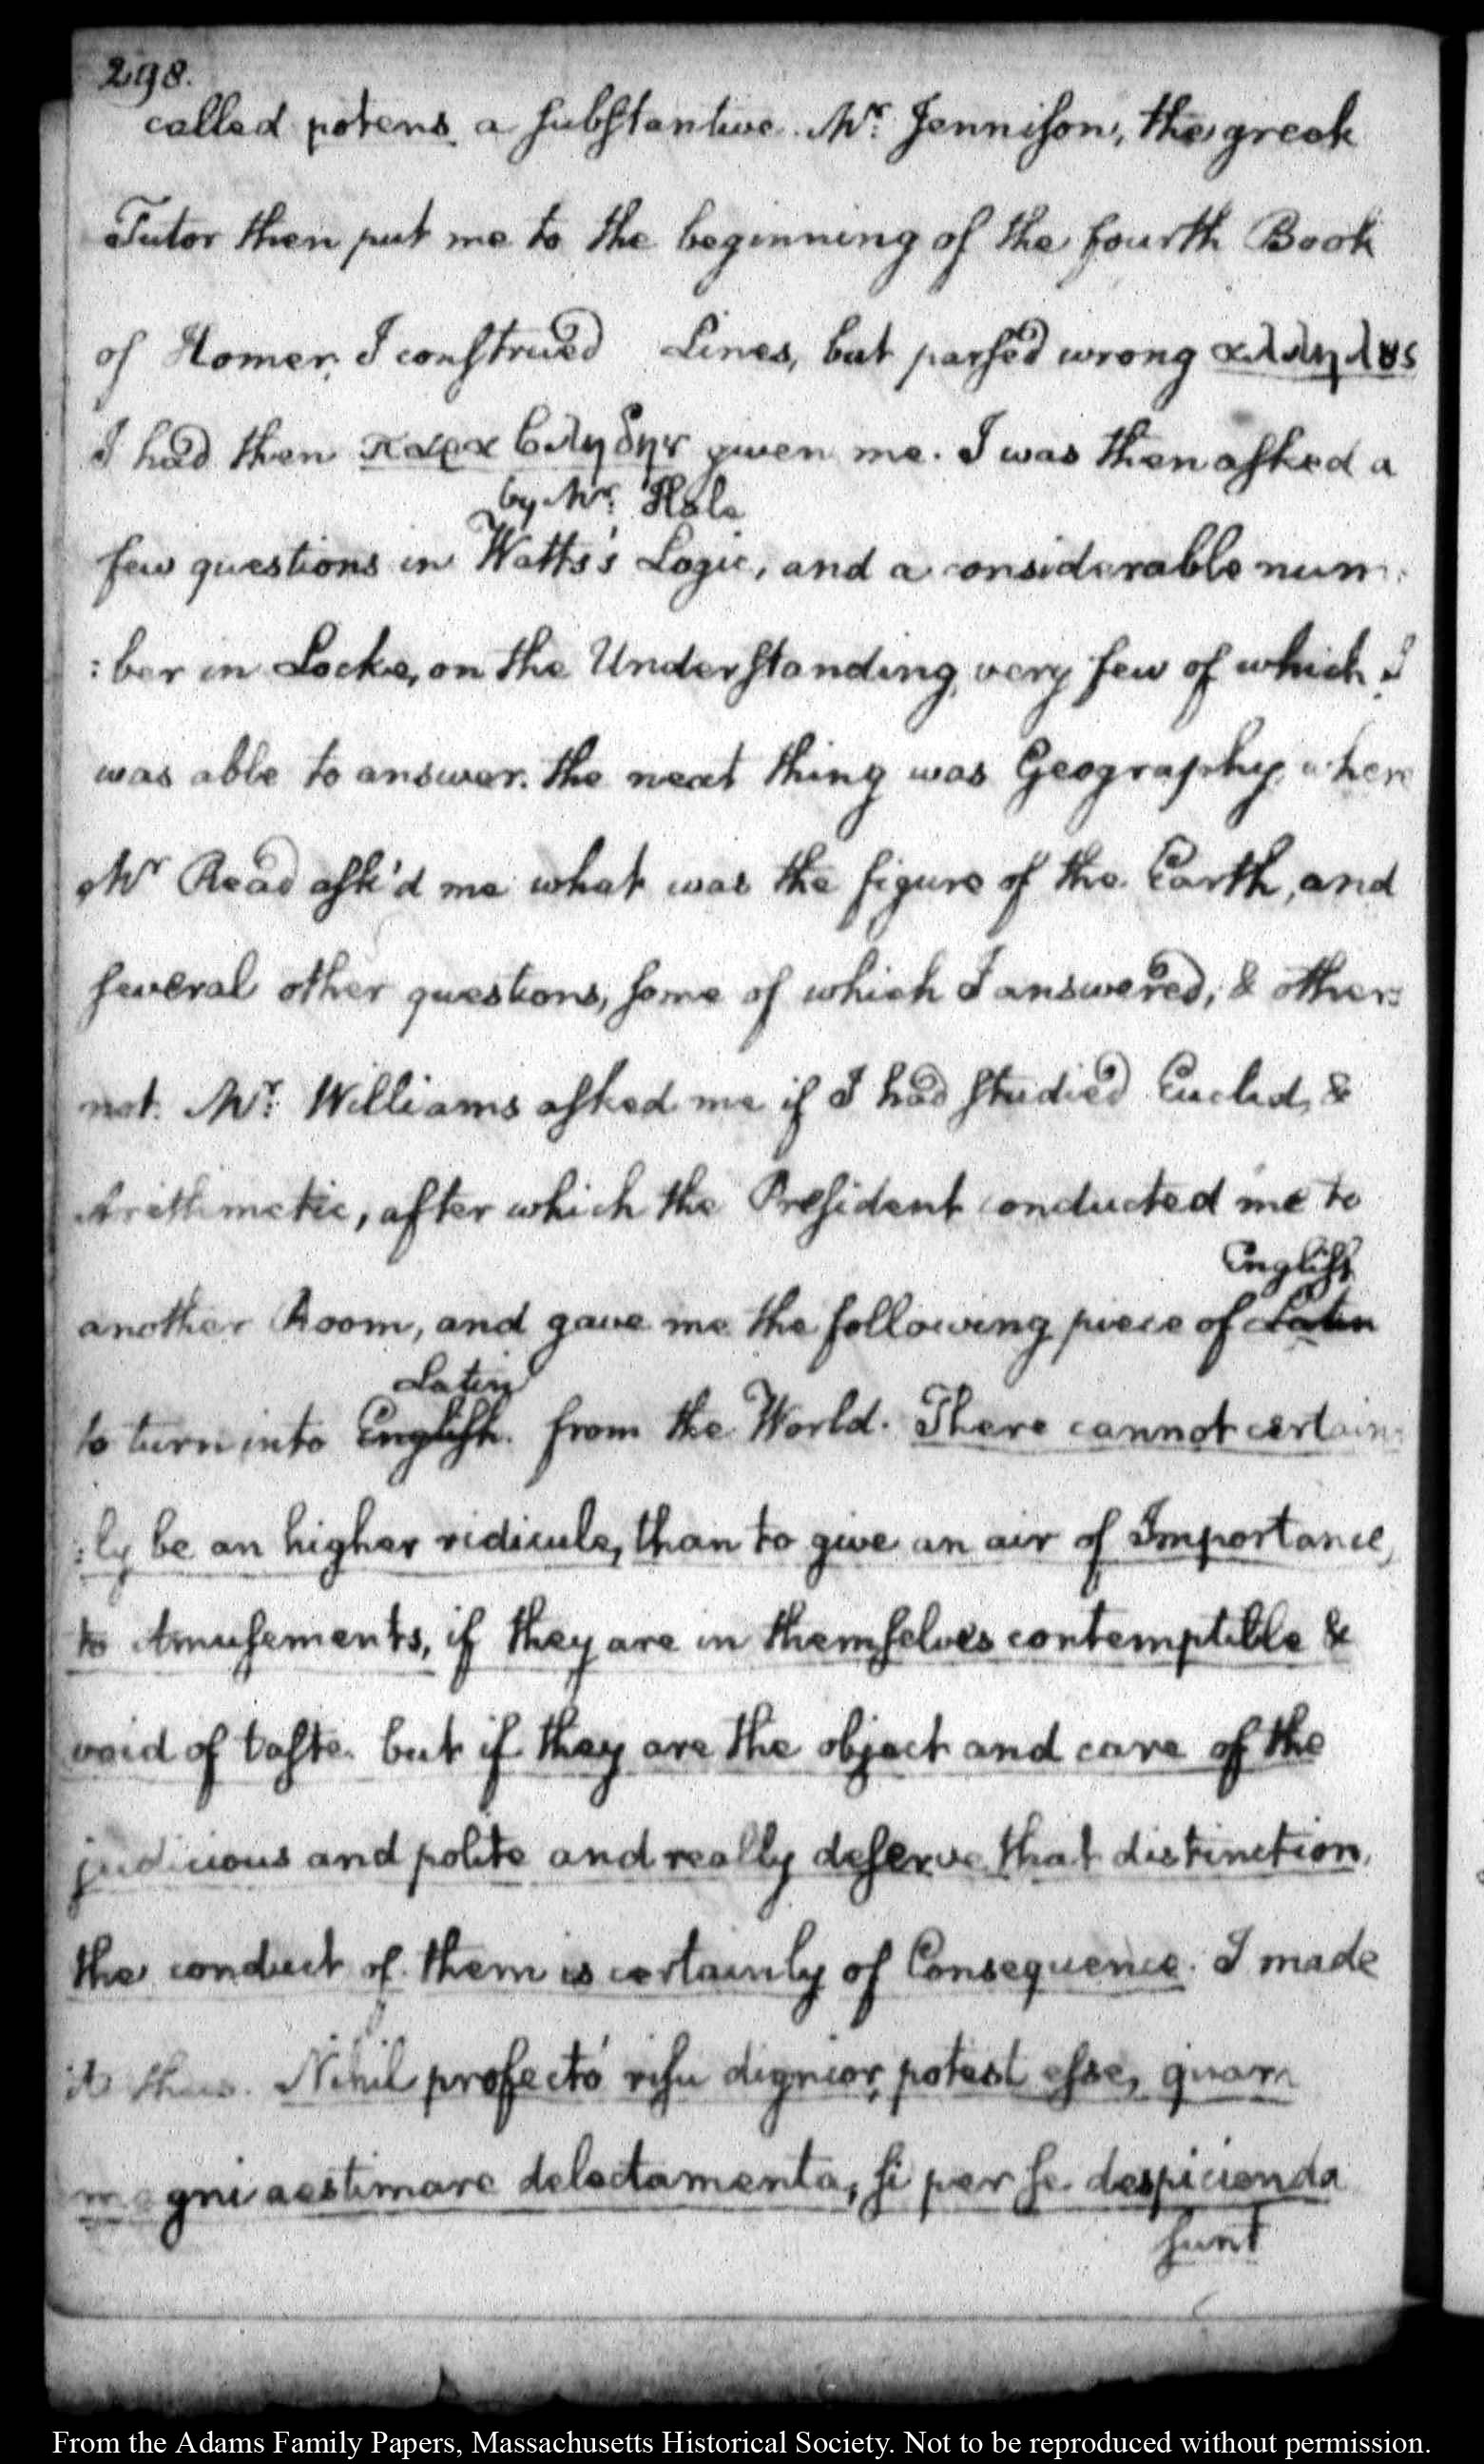 298.
called potens a substantive. Mr. Jennison, the greek
Tutor then put me to the beginning of the fourth Book
of Homer, I construed Lines, but parsed wrong αλλήλȣς
I had then παραβλήδην given me. I was then asked a
by Mr. Hale
few questions in Watts's Logic, and a considerable num:
:ber in Locke, on the Understanding, very few of which I
was able to answer. the next thing was Geography, where
Mr Read ask'd me what was the figure of the Earth, and
several other questions, some of which I answered; & others
not. Mr. Williams asked me if I had studied Euclid, &
Arithmetic, after which the President conducted me to
English
another Room, and gave me the following piece of Latin
Latin
to turn into English. from the World. There cannot certain:
:ly be an higher ridicule, than to give an air of Importance,
to Amusements, if they are in themselves contemptible &
void of taste. but if they are the object and care of the
judicious and polite and really deserve that distinction,
the conduct of them is certainly of Consequence. I made
it thus. Nihil profectó risu dignior, potest esse, quam
magni aestimare delectamenta, si per se despicienda
sunt
From the Adams Family Papers, Massachusetts Historical Society. Not to be reproduced without permission.